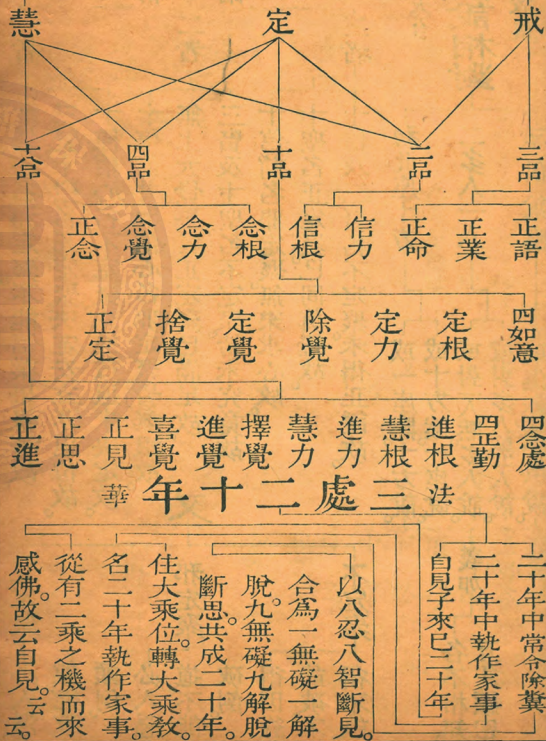 戒
定
慧
三品
二品
十品
四品
十八品
正語
正業
正命
信力
信根
念根
念力
念覺
正念
四如意
定根
定力
除覺
定覺
捨覺
正定
四念處
四正勤
進根
慧根
進力
慧力
擇覺
進覺
喜覺
正見
正思
正進
法華三處二十年
二十年中常令除糞
二十年中執作家事
自見子來已二十年
以八忍八智斷見。
合爲一無礙一解
脫。九無礙九解脫
斷思。共成二十年。
住大乘位。轉大乘教。
名二十年執作家事。
從有二乘之機而來
感佛。故云自見。云云。